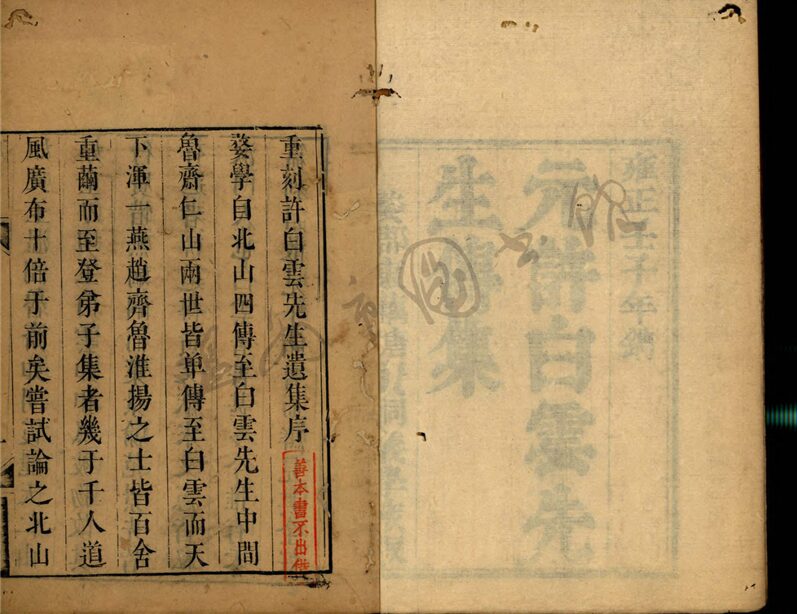 雍正壬子年鐫
元許白雲先
生集
重刻許白雲先生遺集序
善本書不出借
婺學自北山四傳至白雲先生中間
魯齋仁山兩世皆单傳至白雲而天
下渾一燕趙齊魯淮揚之士皆百舍
重繭而至登弟子集者幾于千人道
風廣布十倍于前矣嘗試論之北山